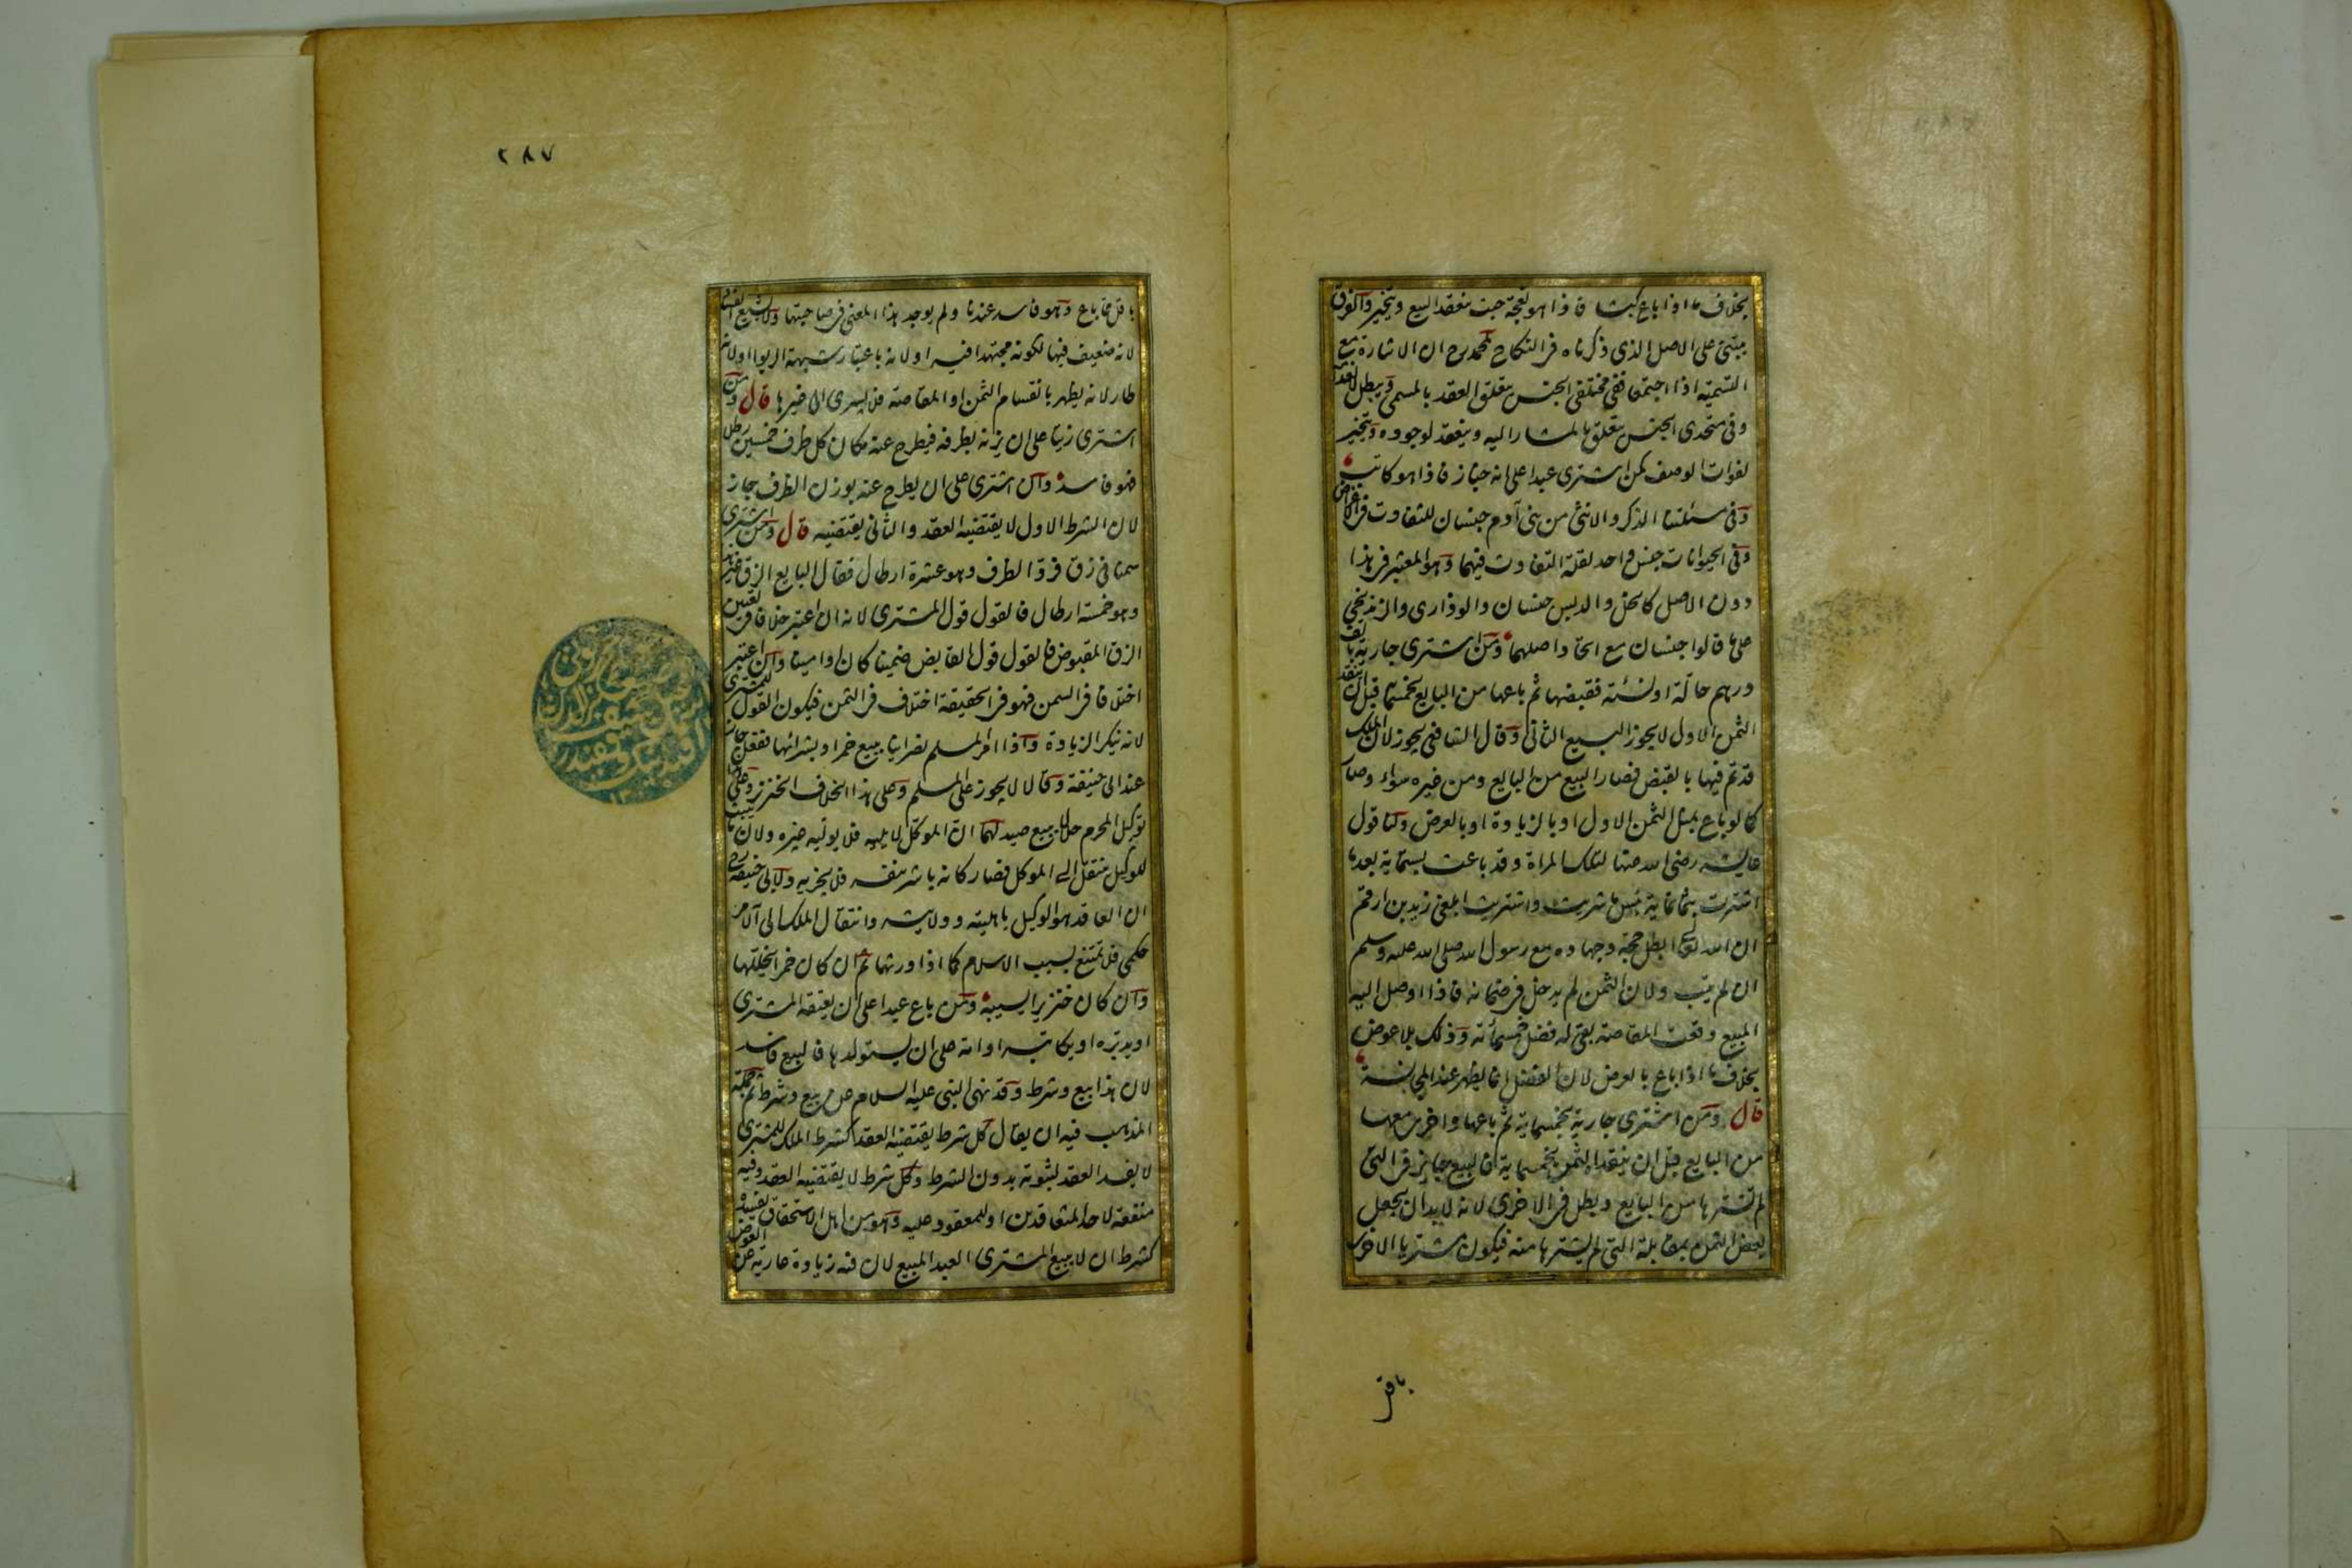 بخلاف ما اذا باع كبشا فاذا هو نعجة حيث ينعقد البيع ويتخير والفرق
يبتنى على الاصل الذى ذكرناه فى النكاح لمحمد رح ان الاشارة مع
التسمية اذا اجتمعتا ففى مختلفى الجنس يتعلق العقد بالمسمى ويبطل لانعدامه
وفى متحدى الجنس يتعلق بالمشار اليه وينعقد لوجوده ويتخير
لفوات الوصف كمن اشترى عبدا على انه خباز فاذا هو كاتب
وفى مسئلتنا الذكر والانثى من بنى آدم جنسان للتفاوت فى الاغراض
وفى الحيوانات جنس واحد لقلة التفاوت فيهما وهو المعتبر فى هذا
دون الاصل كالخل والدبس جنسان والوذارى والزندنيجى
على ما قالوا جنسان مع اتحاد اصلهما ومن اشترى جارية بالف
درهم حالّة او نسئة فقبضها ثم باعها من البايع بخمسمائة قبل ان ينقد
الثمن الاول لا يجوز البيع الثانى وقال الشافعى يجوز لان الملك
قد تم فيها بالقبض فصار البيع من البايع ومن غيره سواء وصار
كما لو باع بمثل الثمن الاول او بالزيادة او بالعرض ولنا قول
عايشه رضى الله عنها لتلك المراة وقد باعت بستماية بعد ما
اشترت بثمانماية بئس ما شريت واشتريت ابلغى زيد بن ارقم
ان الله تعالى ابطل حجه وجهاده مع رسول الله صلى الله عليه وسلم
ان لم يتب ولان الثمن لم يدخل فى ضمانه فاذا وصل اليه
المبيع وقعت المقاصة بقى له فضل خمسمائة وذلك بلا عوض
بخلاف ما اذا باع بالعرض لان الفضل انما يظهر عند المجانسة
قال ومن اشترى جارية بخمسماية ثم باعها واخرى معها
من البايع قبل ان ينقد الثمن بخمسماية فالبيع جايز فى التى
لم تشترها من البايع ويبطل فى الاخرى لانه لا بد ان يجعل
بعض الثمن بمقابلة التى لم يشترها منه فيكون مشتريا الاخرى
باقل
٢٨٧
باقل مما باع وهو فاسد عندنا ولم يوجد هذا المعنى فى صاحبتها ولا يشيع الفساد
لانه ضعيف فيها لكونه مجتهدا فيه او لانه باعتبار شبهة الربوا او لانه
طار لانه يظهر بانقسام الثمن او المقاصة فلا يسرى الى غيرها قال ومن
اشترى زيتا على ان يزنه بظرفه فيطرح عنه مكان كل ظرف خمسين رطلا
فهو فاسد وان اشترى على ان يطرح عنه بوزن الظرف جاز
لان الشرط الاول لا يقتضيه العقد والثانى يقتضيه قال ومن اشترى
سمنا فى زق فرد الظرف وهو عشرة ارطال فقال البايع الزق غير هذا
وهو خمسة ارطال فالقول قول المشترى لانه ان اعتبر خلافا فى تعيين
الزق المقبوض فالقول قول القابض ضمينا كان او امينا وان اعتبر
اختلافا فى السمن فهو فى الحقيقة اختلاف فى الثمن فيكون القول للمشترى
لانه ينكر الزيادة واذا امر المسلم نصرانيا ببيع خمر او بشرائها ففعل جاز
عند ابى حنيفة وقالا لا يجوز على المسلم وعلى هذا الخلاف الخنزير وعلى هذا
توكيل المحرم حلالا ببيع صيد لهما ان الموكل لا يليه فلا يوليه غيره ولان ما يثبت
للوكيل ينتقل الى الموكل فصار كانه باشر بنفسه فلا يجزيه ولابى حنيفة رح
ان العاقد هو الوكيل باهليته وولايته وانتقال الملك الى الآمر
حكمى فلا يمتنع بسبب الاسلام كما اذا ورثهما ثم ان كان خمرا يخللها
وان كان خنزيرا يسيبه ومن باع عبدا على ان يعتقه المشترى
او يدبره او يكاتبه او امة على ان يستولدها فالبيع فاسد
لان هذا بيع وشرط وقد نهى النبى عليه السلام عن بيع وشرط ثم جملة
المذهب فيه ان يقال كل شرط يقتضيه العقد كشرط الملك للمشترى
لا يفسد العقد لثبوته بدون الشرط وكل شرط لا يقتضيه العقد وفيه
منفعة لاحد المتعاقدين او للمعقود عليه وهو من اهل الاستحقاق يفسده
كشرط ان لا يبيع المشترى العبد المبيع لان فيه زيادة عارية عن العوض